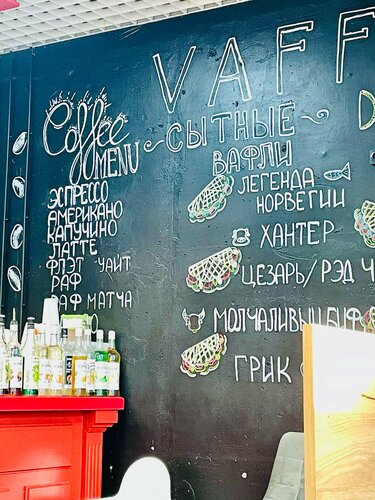 VAFF
Coffee
MENU
ЭСПРЕССО
АМЕРИКАНО
КАПУЧИНО
ЛАТТЕ
ФЛЭТ УАЙТ
РАФ
РАФ МАТЧА
СЫТНЫЕ
ВАФЛИ
ЛЕГЕНДА
НОРВЕГИИ
ХАНТЕР
ЦЕЗАРЬ/РЭД Ч
МОЛЧАЛИВЫЙ БИФ
ГРИК